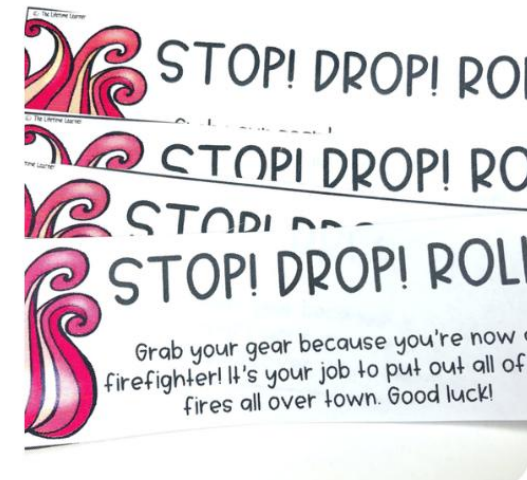 © The Lifetime Learner
STOP! DROP! RO
© The Lifetime Learner
STOP! DROP! RO
STOP!
STOP! DROP! ROL
Grab your gear because you're now
firefighter! It's your job to put out all of
fires all over town. Good luck!